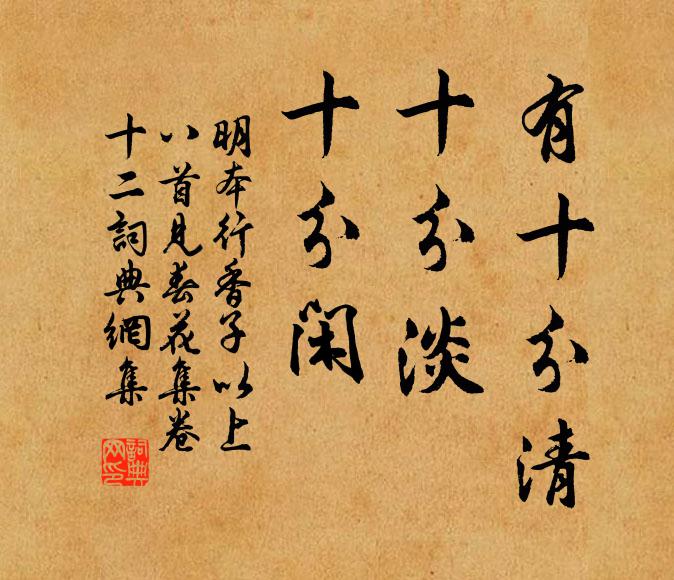 有十分清
十分淡
十分閑
明本行香子以上
八首見春花集卷
十二詞典網集
詞典
网印